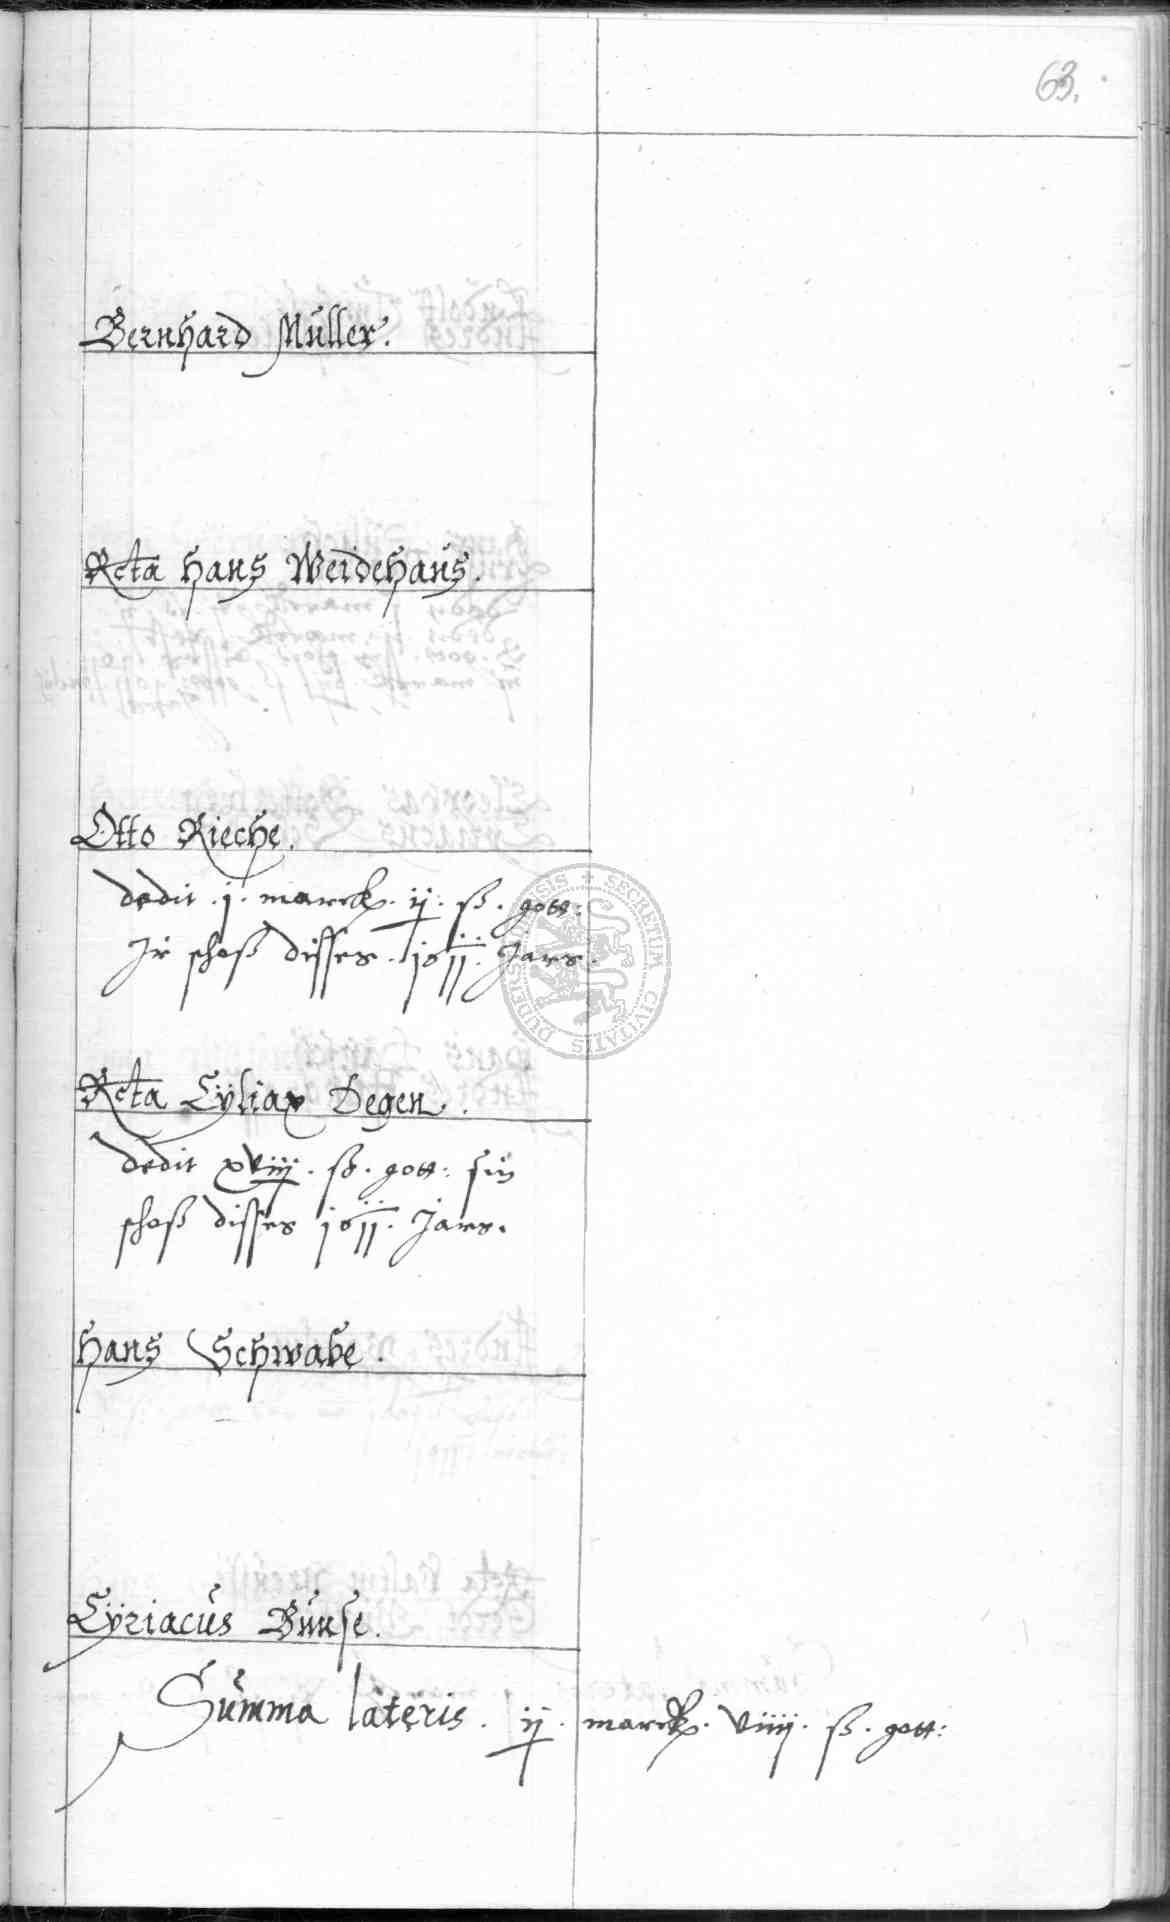 63.
Bernhard Müller.
Rcta Hans Weidehans.
Otto Rieche.
dedit . j . marck . ij . ß . gott:
Ir schoß disses . 1611 . Jars .
Rcta Cÿliax Degen .
dedit xviij . ß . gott: sin
schoß disses 1611 . Jars.
Hans Schwabe .
Cÿriacus Bunse.
Summa lateris . ij . marck . viiij . ß . gott:
SECRETUM CIVITATIS